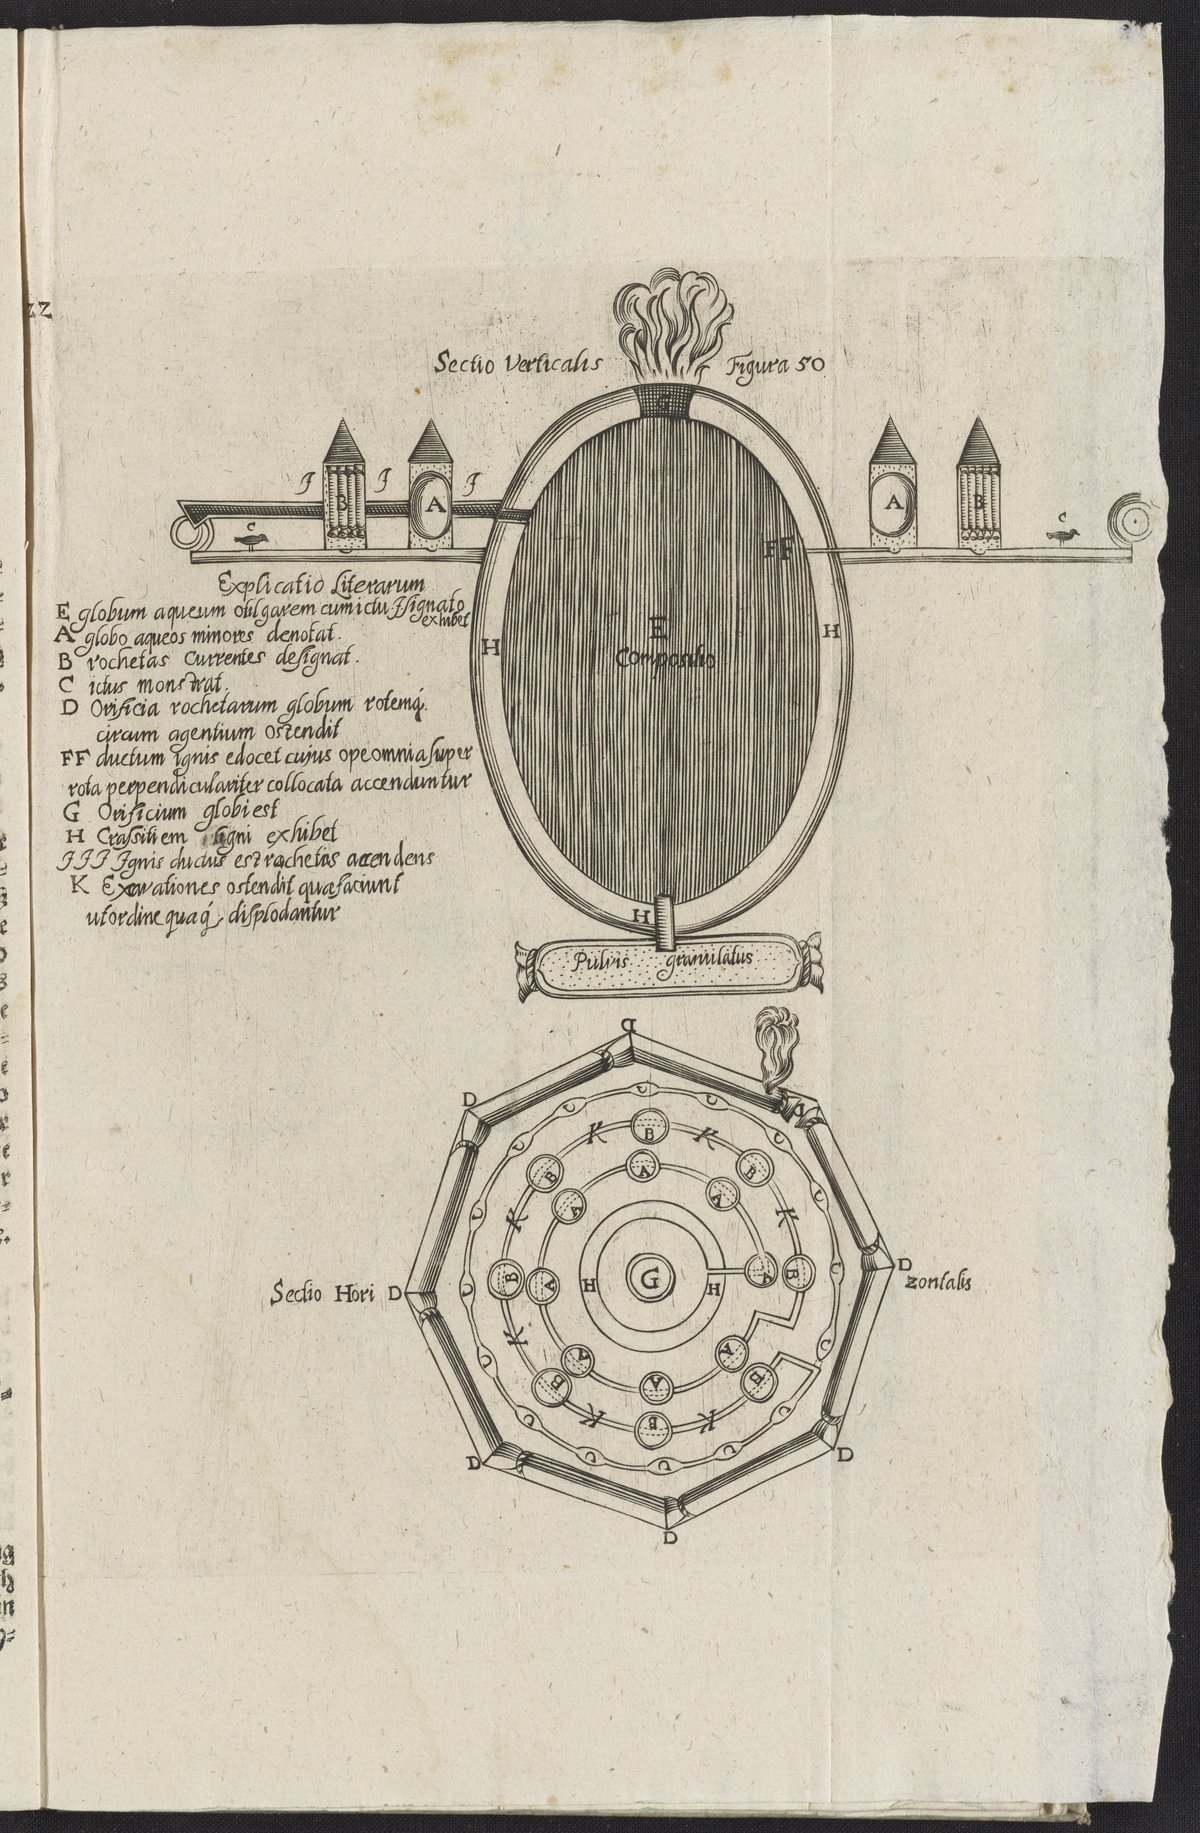 Sectio Verticalis
Figura 50
G
J J J
B A
A B
C
C
FF
H
E
Compositio
H
H
Pulvis granulatus
Explicatio Literarum
E globum aqueum
exhibet
A globo aqueos minores denotat.
B rochetas Currentes designat.
C ictus monstrat.
D Orificia rochetarum globum rotemq́.
circum agentium ostendit
FF ductum ignis edocet cujus ope omnia super
rota perpendiculariter collocata accenduntur
G Orificium globi est
H Crassitiem ligni exhibet
JJJ Ignis ductus est rochetas accendens
K Excavationes ostendit quæ faciunt
ut ordine quaq́, displodantur
D
D
D
K B K
B A B
A A
K K
Sectio Hori D
B A H G H A B
D zontalis
K
A A
B B
K K
A
B
D
D
D